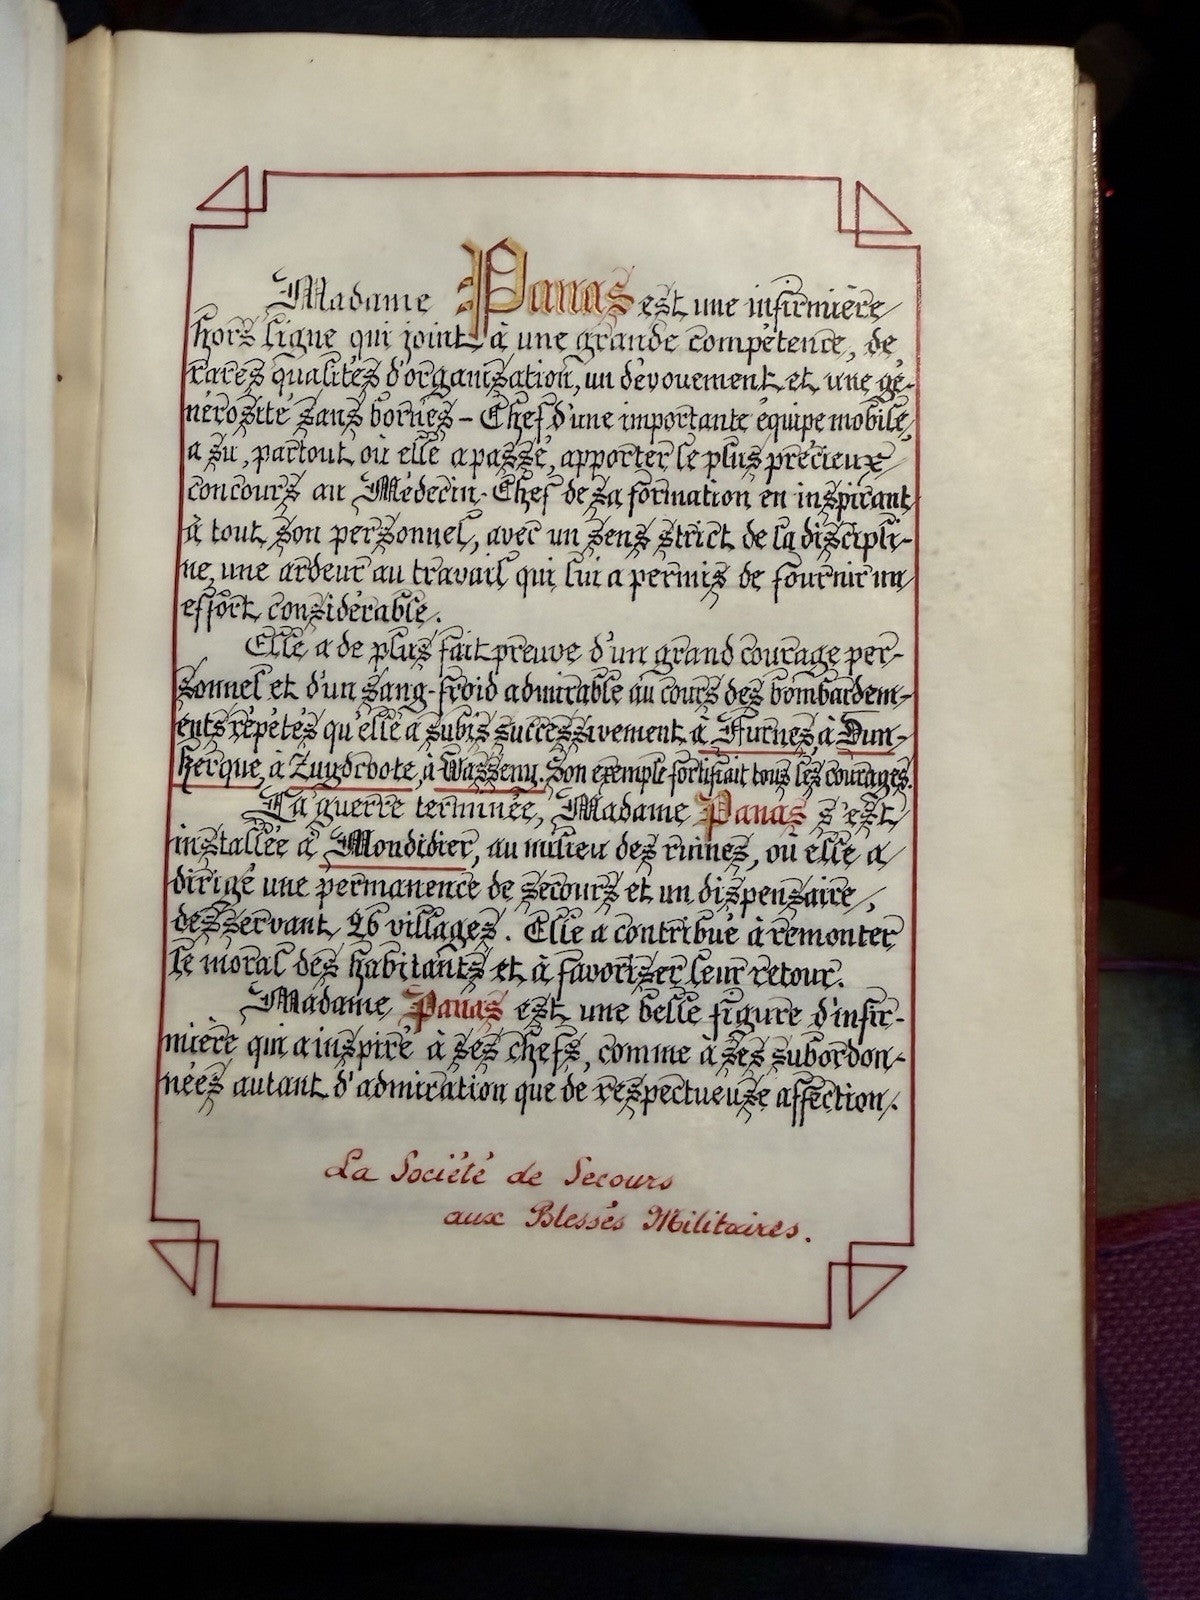 Madame Panas est une infirmière
hors ligne qui joint à une grande compétence, de
rares qualités d'organisation, un dévouement et une gé-
nérosité sans bornes - Chef d'une importante équipe mobile,
a su, partout où elle a passé, apporter le plus précieux
concours au Médecin-Chef de sa formation en inspirant
à tout son personnel, avec un sens strict de la discipli-
ne, une ardeur au travail qui lui a permis de fournir un
effort considérable.
Elle a de plus fait preuve d'un grand courage per-
sonnel et d'un sang-froid admirable au cours des bombardem-
ents répétés qu'elle a subis successivement à Furnes, à Dun-
kerque, à Zuydcoote, à Wasseny. Son exemple fortifiait tous les courages.
La guerre terminée, Madame Panas s'est
installée à Mondidier, au milieu des ruines, où elle a
dirigé une permanence de secours et un dispensaire,
desservant 26 villages. Elle a contribué à remonter
le moral des habitants et à favoriser leur retour.
Madame Panas est une belle figure d'infir-
mière qui a inspiré à ses chefs, comme à ses subordon-
nées autant d'admiration que de respectueuse affection.
La Société de Secours
aux Blessés Militaires.